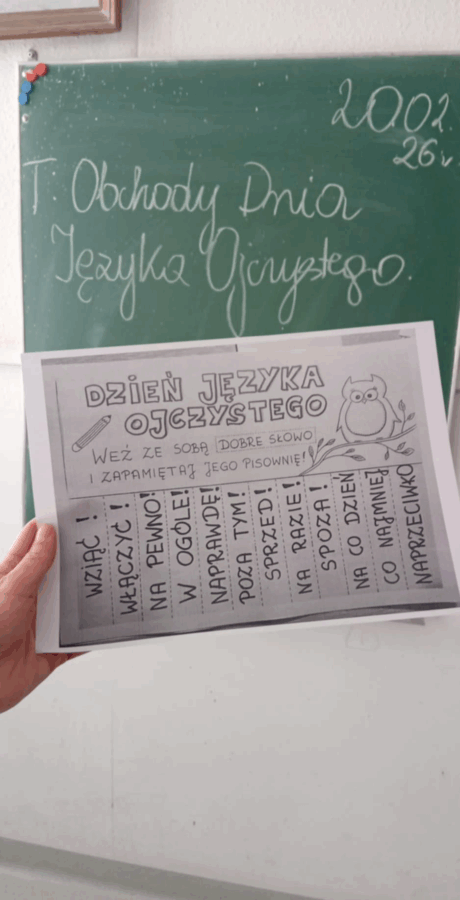 20.02.
26r.
T: Obchody Dnia
Języka Ojczystego.
DZIEŃ JĘZYKA
OJCZYSTEGO
WEŹ ZE SOBĄ DOBRE SŁOWO
I ZAPAMIĘTAJ JEGO PISOWNIĘ!
WZIĄĆ!
WŁĄCZYĆ!
NA PEWNO!
W OGÓLE!
NAPRAWDĘ!
POZA TYM!
SPRZED!
NA RAZIE!
SPOZA!
NA CO DZIEŃ
CO NAJMNIEJ
NAPRZECIWKO